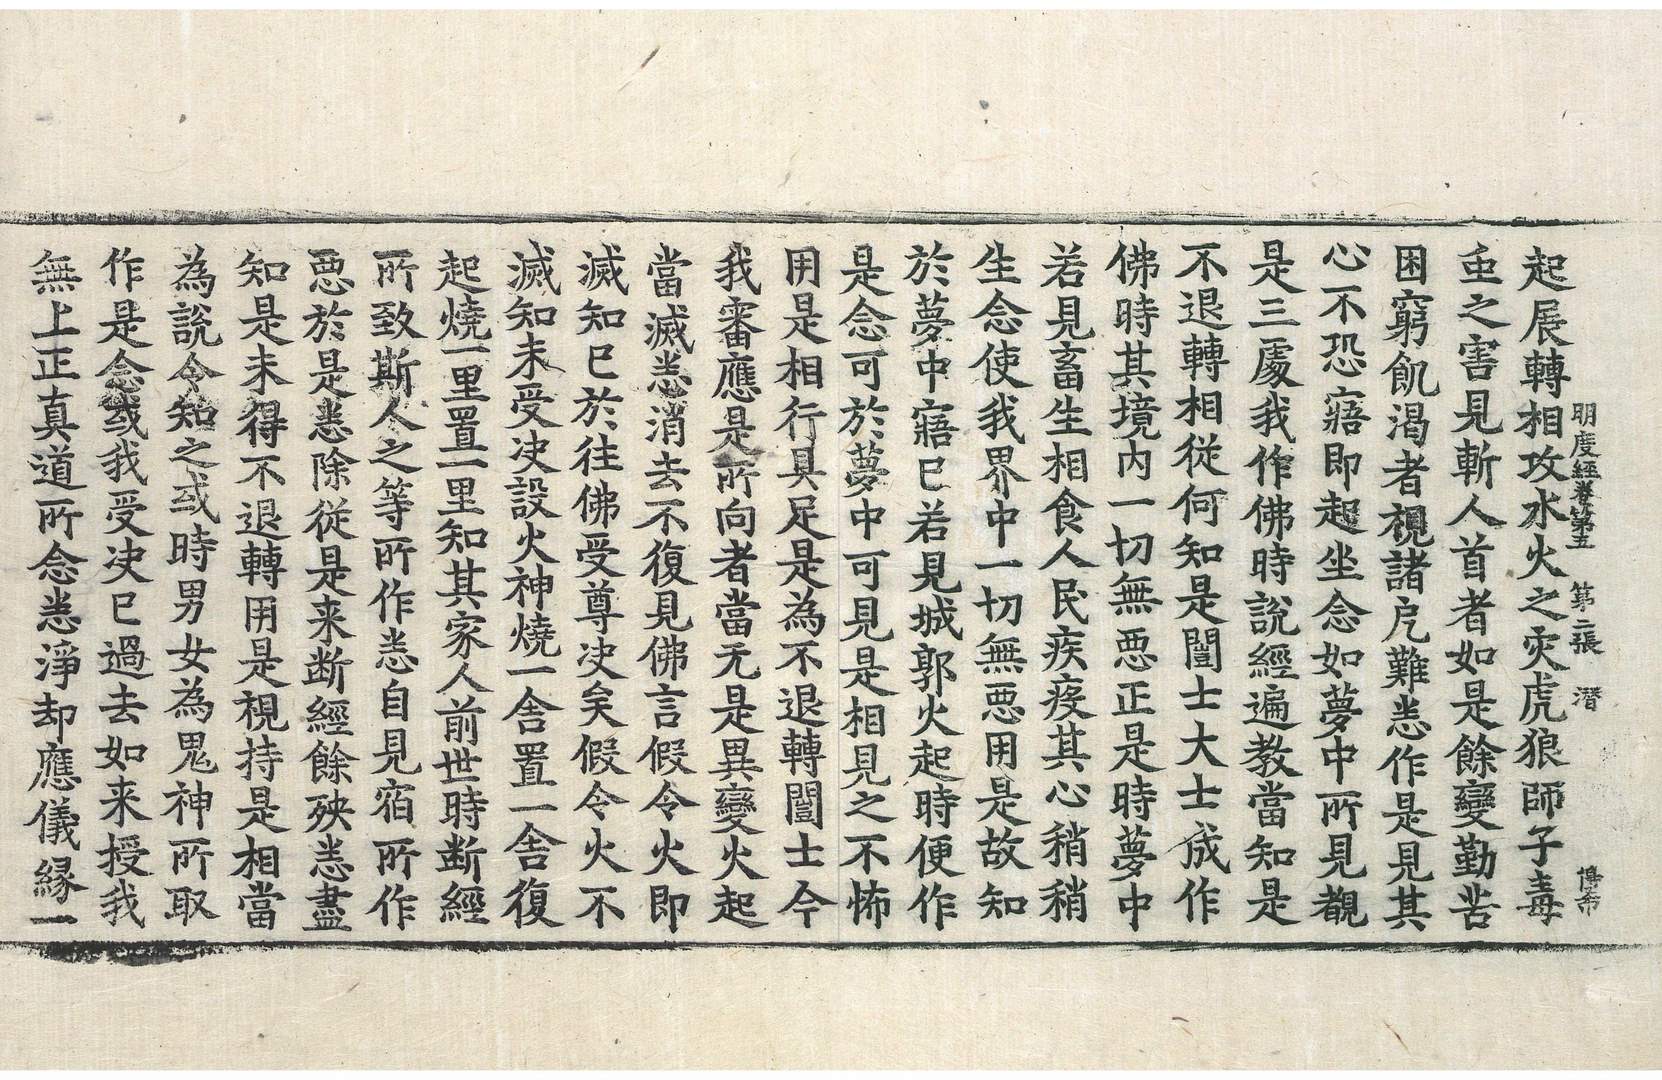 明度經卷第五 第二張 潛
起展轉相攻水火之灾虎狼師子毒
䖝之害見斬人首者如是餘變勤苦
困窮飢渴者覩諸厄難悉作是見其
心不恐寤即起坐念如夢中所見觀
是三處我作佛時說經遍教當知是
不退轉相從何知是闓士大士成作
佛時其境内一切無惡正是時夢中
若見畜生相食人民疾疫其心稍稍
生念使我界中一切無惡用是故知
於夢中寤已若見城郭火起時便作
是念可於夢中可見是相見之不怖
用是相行具足是為不退轉闓士今
我審應是所向者當无是異變火起
當滅悉消去不復見佛言假令火即
滅知已於往佛受尊决矣假令火不
滅知未受决設火神燒一舎置一舎復
起燒一里置一里知其家人前世時断經
所致斯人之等所作悉自見宿所作
惡於是悉除從是来断經餘殃悉盡
知是未得不退轉用是視持是相當
為說令知之或時男女為鬼神所取
作是念或我受决已過去如来授我
無上正真道所念悉淨却應儀緣一